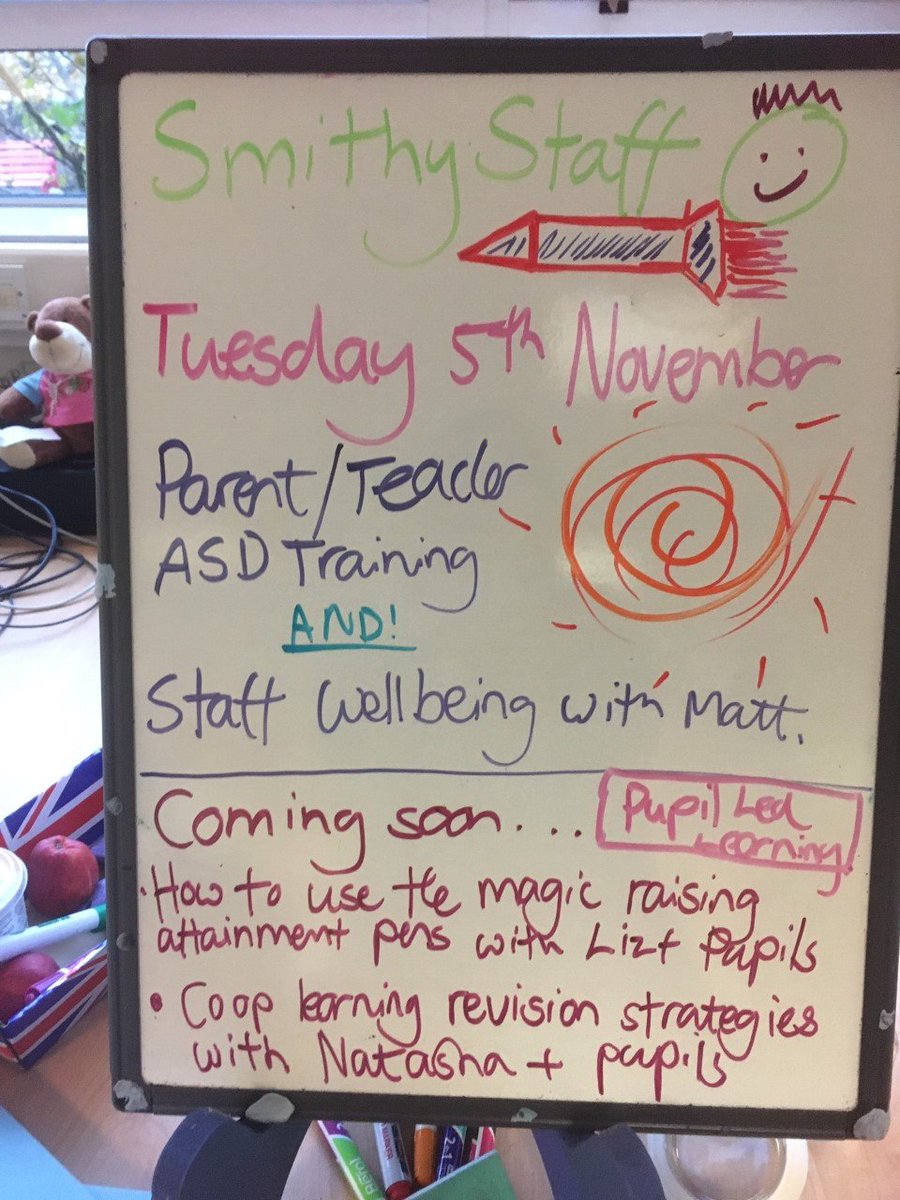 Smithy Staff
Tuesday 5th November
Parent/Teacher
ASD Training
AND!
Staff Wellbeing with Matt.
Coming soon....
Pupil Led
Learning
· How to use the magic raising
attainment pens with Liz + Pupils
• Coop learning revision strategies
with Natasha + pupils